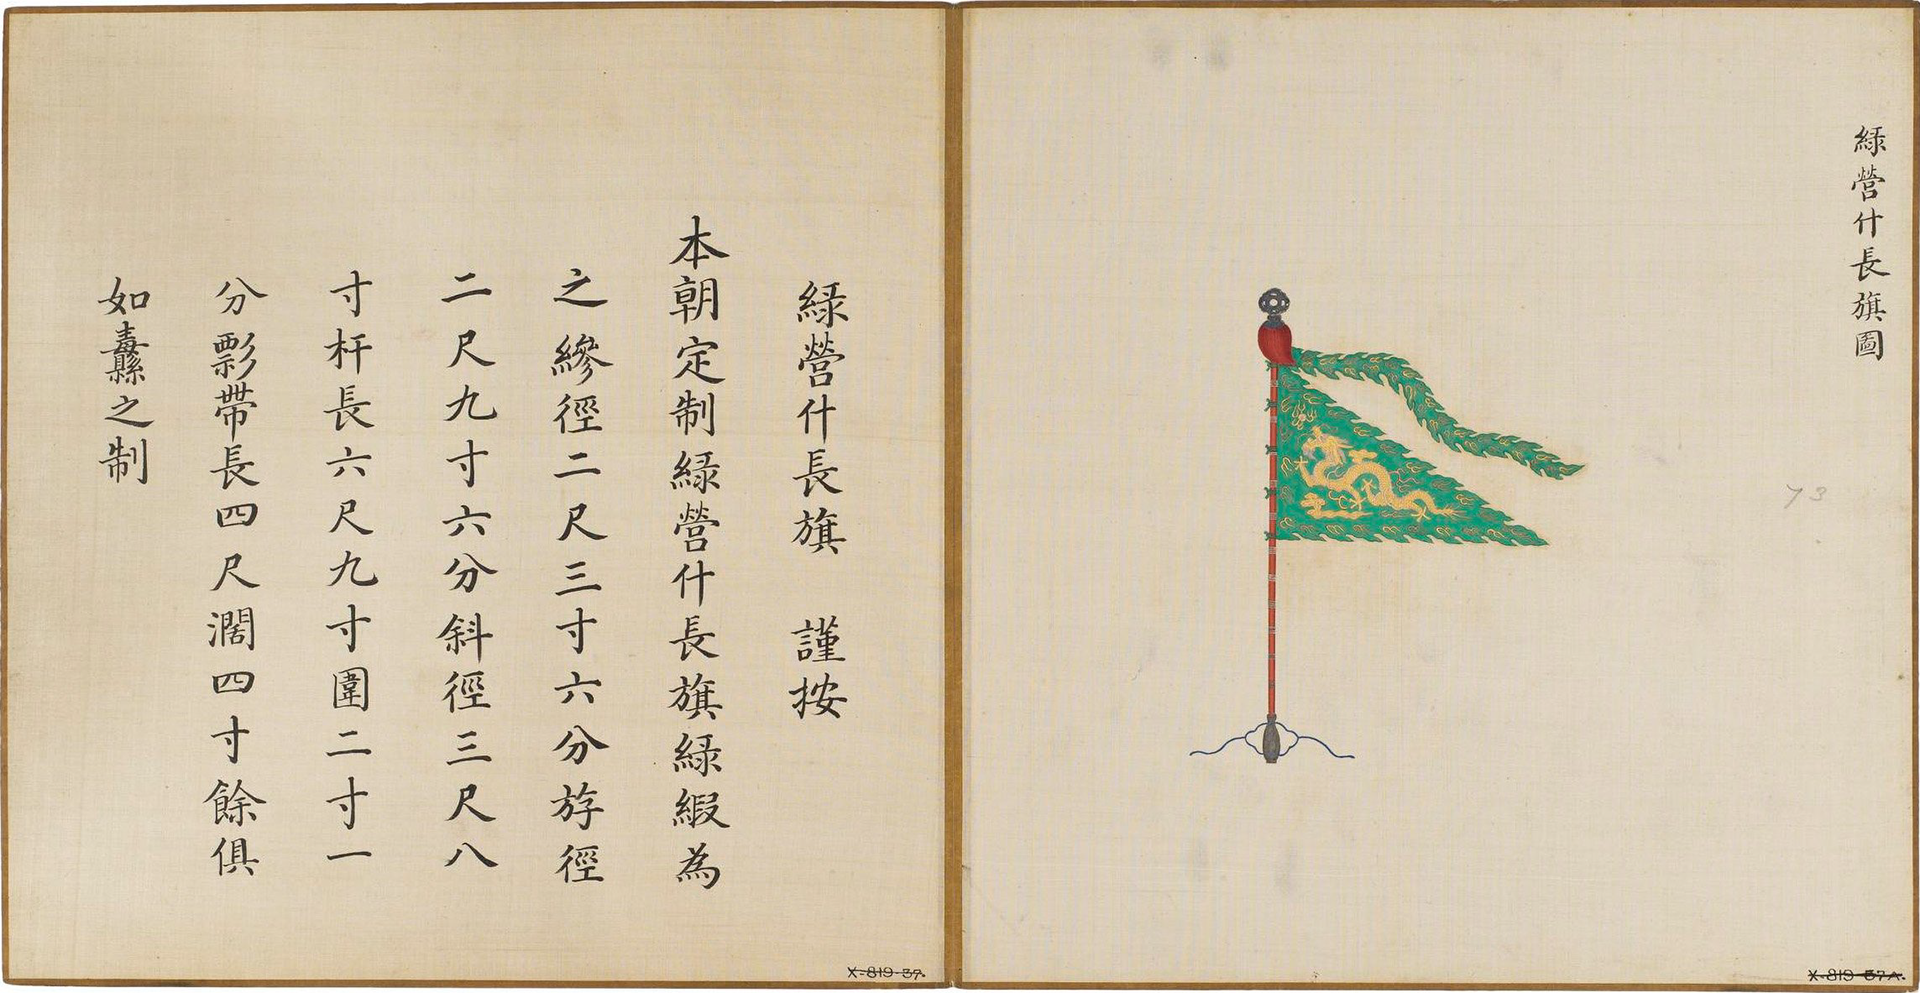 綠營什長旗圖
73
X-819-37A.
綠營什長旗　謹按
本朝定制綠營什長旗綠緞為
之縿徑二尺三寸六分斿徑
二尺九寸六分斜徑三尺八
寸杆長六尺九寸圍二寸一
分彯帶長四尺濶四寸餘俱
如纛之制
X-819-37.